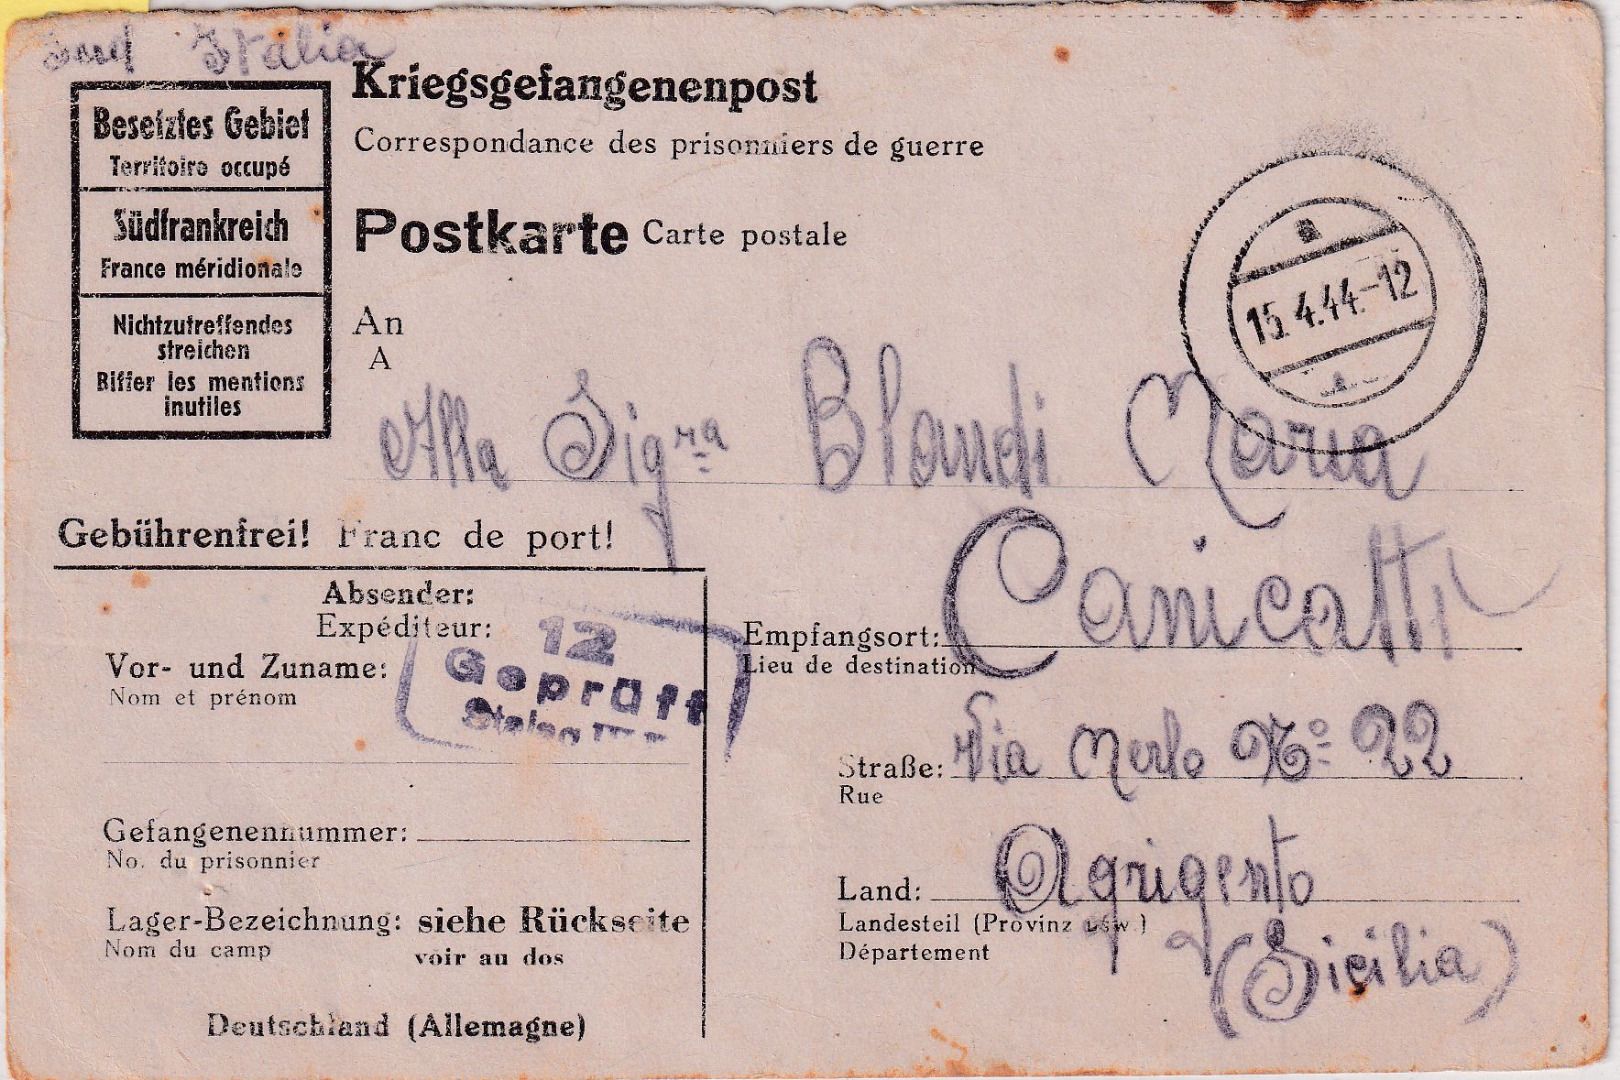 Sud Italia
Besetztes Gebiet
Territoire occupé
Südfrankreich
France méridionale
Nichtzutreffendes
streichen
Biffer les mentions
inutiles
Kriegsgefangenenpost
Correspondance des prisonniers de guerre
Postkarte Carte postale
a
15.4.44.-12
An
A
Alla Sigra Blandi Maria
Gebührenfrei! Franc de port!
Absender:
Expéditeur:
Vor- und Zuname:
Nom et prénom
12
Geprüft
Stalag
Gefangenennummer:
No. du prisonnier
Lager-Bezeichnung: siehe Rückseite
Nom du camp voir au dos
Deutschland (Allemagne)
Empfangsort: Canicatti
Lieu de destination
Straße: Via Merlo No 22
Rue
Land: Agrigento
Landesteil (Provinz usw.)
Département
(Sicilia)